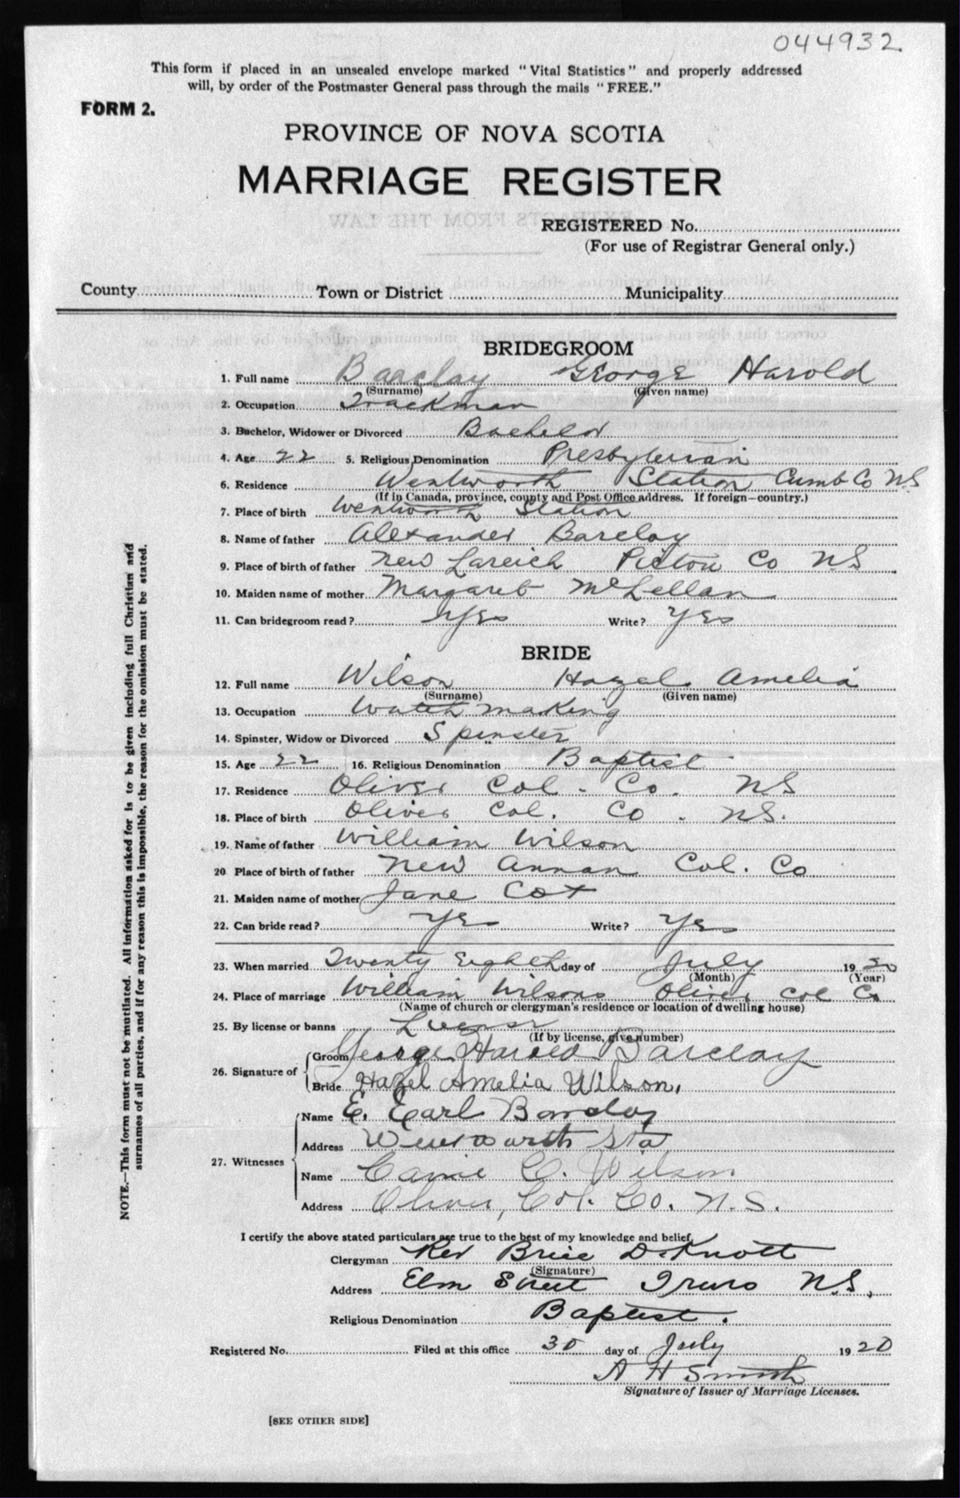 044932
This form if placed in an unsealed envelope marked "Vital Statistics" and properly addressed
will, by order of the Postmaster General pass through the mails "FREE."
FORM 2.
PROVINCE OF NOVA SCOTIA
MARRIAGE REGISTER
EXTRACTS FROM THE LAW
REGISTERED No.
(For use of Registrar General only.)
County Town or District Municipality
BRIDEGROOM
1. Full name Barclay George Harold
(Surname) (Given name)
2. Occupation Trackman
3. Bachelor, Widower or Divorced Bachelor
4. Age 22 5. Religious Denomination Presbyterian
6. Residence Wentworth Station Cumb Co NS
(If in Canada, province, county and Post Office address. If foreign—country.)
7. Place of birth Wentworth Station
8. Name of father Alexander Barclay
9. Place of birth of father New Lareich Pictou Co NS
10. Maiden name of mother Margaret McLellan
11. Can bridegroom read? Yes Write? Yes
BRIDE
12. Full name Wilson Hazel Amelia
(Surname) (Given name)
13. Occupation Watch making
14. Spinster, Widow or Divorced Spinster
15. Age 22 16. Religious Denomination Baptist
17. Residence Oliver Col. Co. NS
18. Place of birth Oliver Col. Co. NS.
19. Name of father William Wilson
20 Place of birth of father New Annan Col. Co
21. Maiden name of mother Jane Cox
22. Can bride read? Yes Write? Yes
23. When married Twenty Eighth day of July 1920
(Month) (Year)
24. Place of marriage William Wilsons Oliver Col Co
(Name of church or clergyman's residence or location of dwelling house)
25. By license or banns License
(If by license, give number)
26. Signature of
Groom George Harold Barclay
Bride Hazel Amelia Wilson.
27. Witnesses
Name E. Earl Barclay
Address Wentworth Sta
Name Carrie E. Wilson
Address Oliver, Col. Co. N.S.
I certify the above stated particulars are true to the best of my knowledge and belief.
Clergyman Rev Brice D. Knott
(Signature)
Address Elm Street Truro N.S.
Religious Denomination Baptist.
Registered No. Filed at this office 30 day of July 1920
A H Smith
Signature of Issuer of Marriage Licenses.
[SEE OTHER SIDE]
NOTE.—This form must not be mutilated. All information asked for is to be given including full Christian and
surnames of all parties, and if for any reason this is impossible, the reason for the omission must be stated.